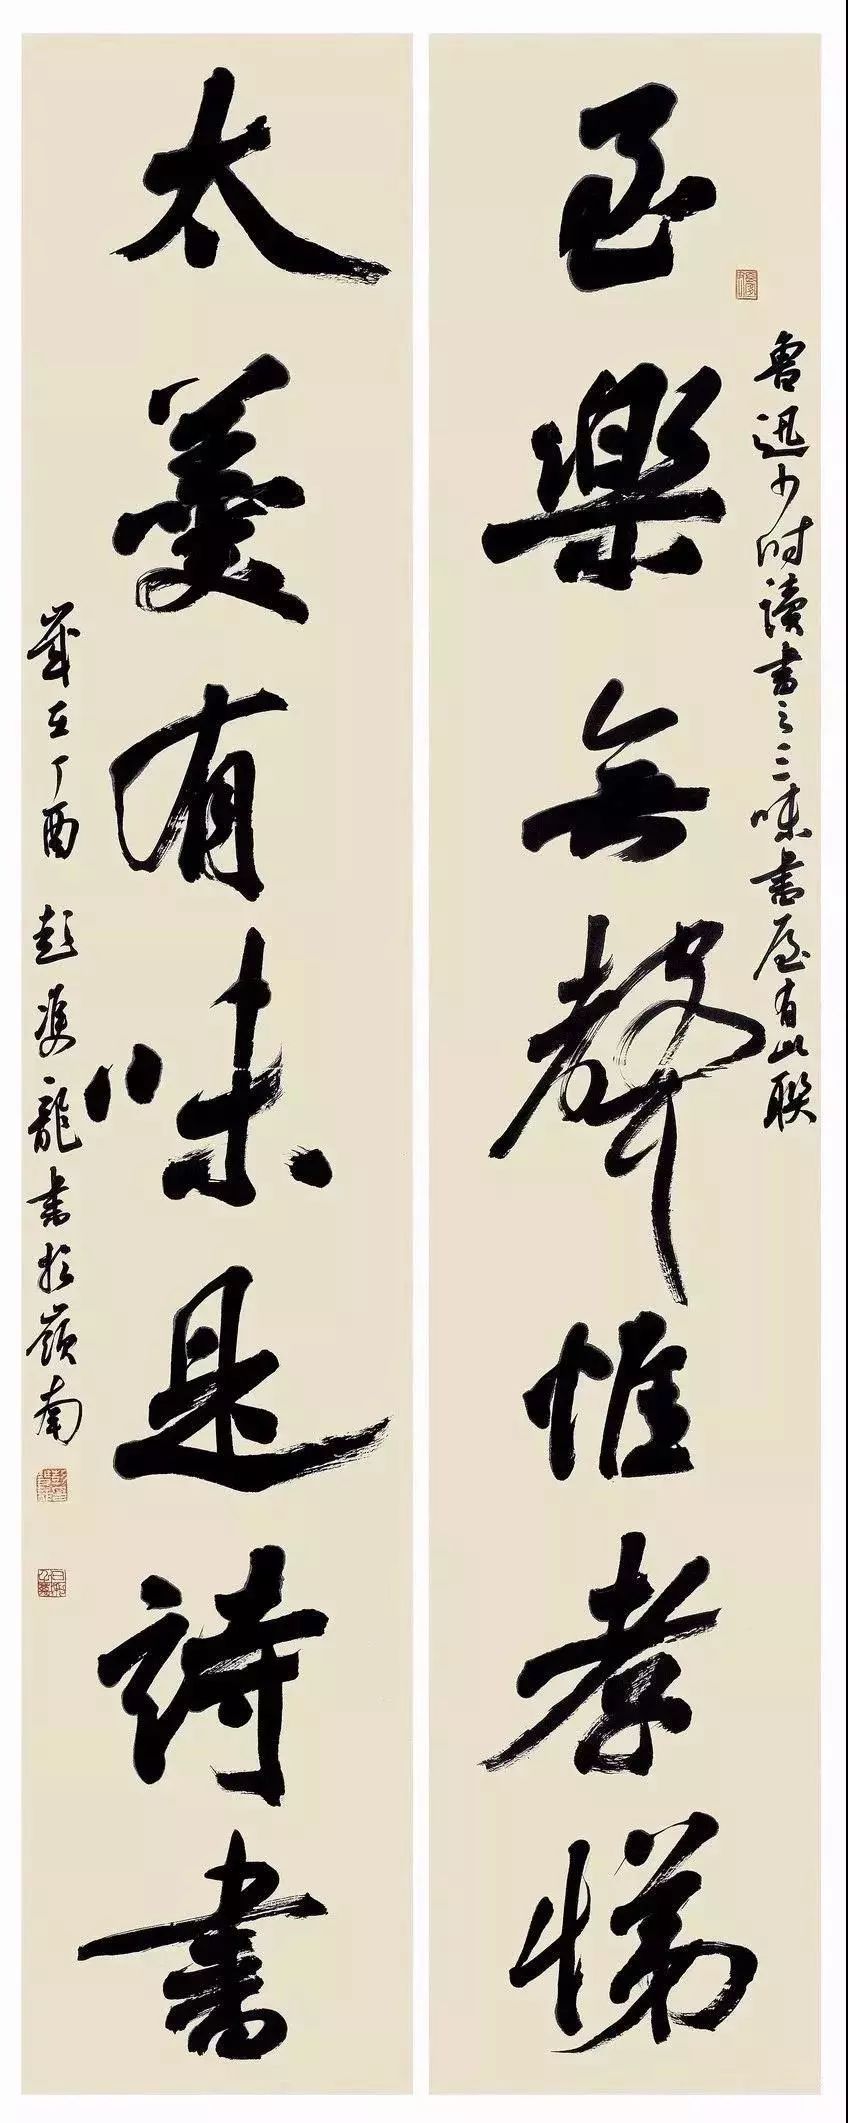 至樂無聲惟孝悌
魯迅少時讀書之三味書屋有此聯
太羹有味是詩書
歲在丁酉彭雙龍書於嶺南